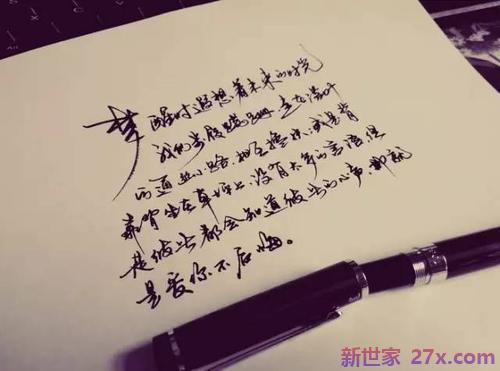 梦醒时遐想着未来的时光
我们步履蹒跚,走在落叶
的道边小路,相互搀扶,或是背
靠背坐在草坪上,没有太多的言语,但
是彼此都会知道彼此的心声,那就
是爱你不后悔。
新世家 27x.com